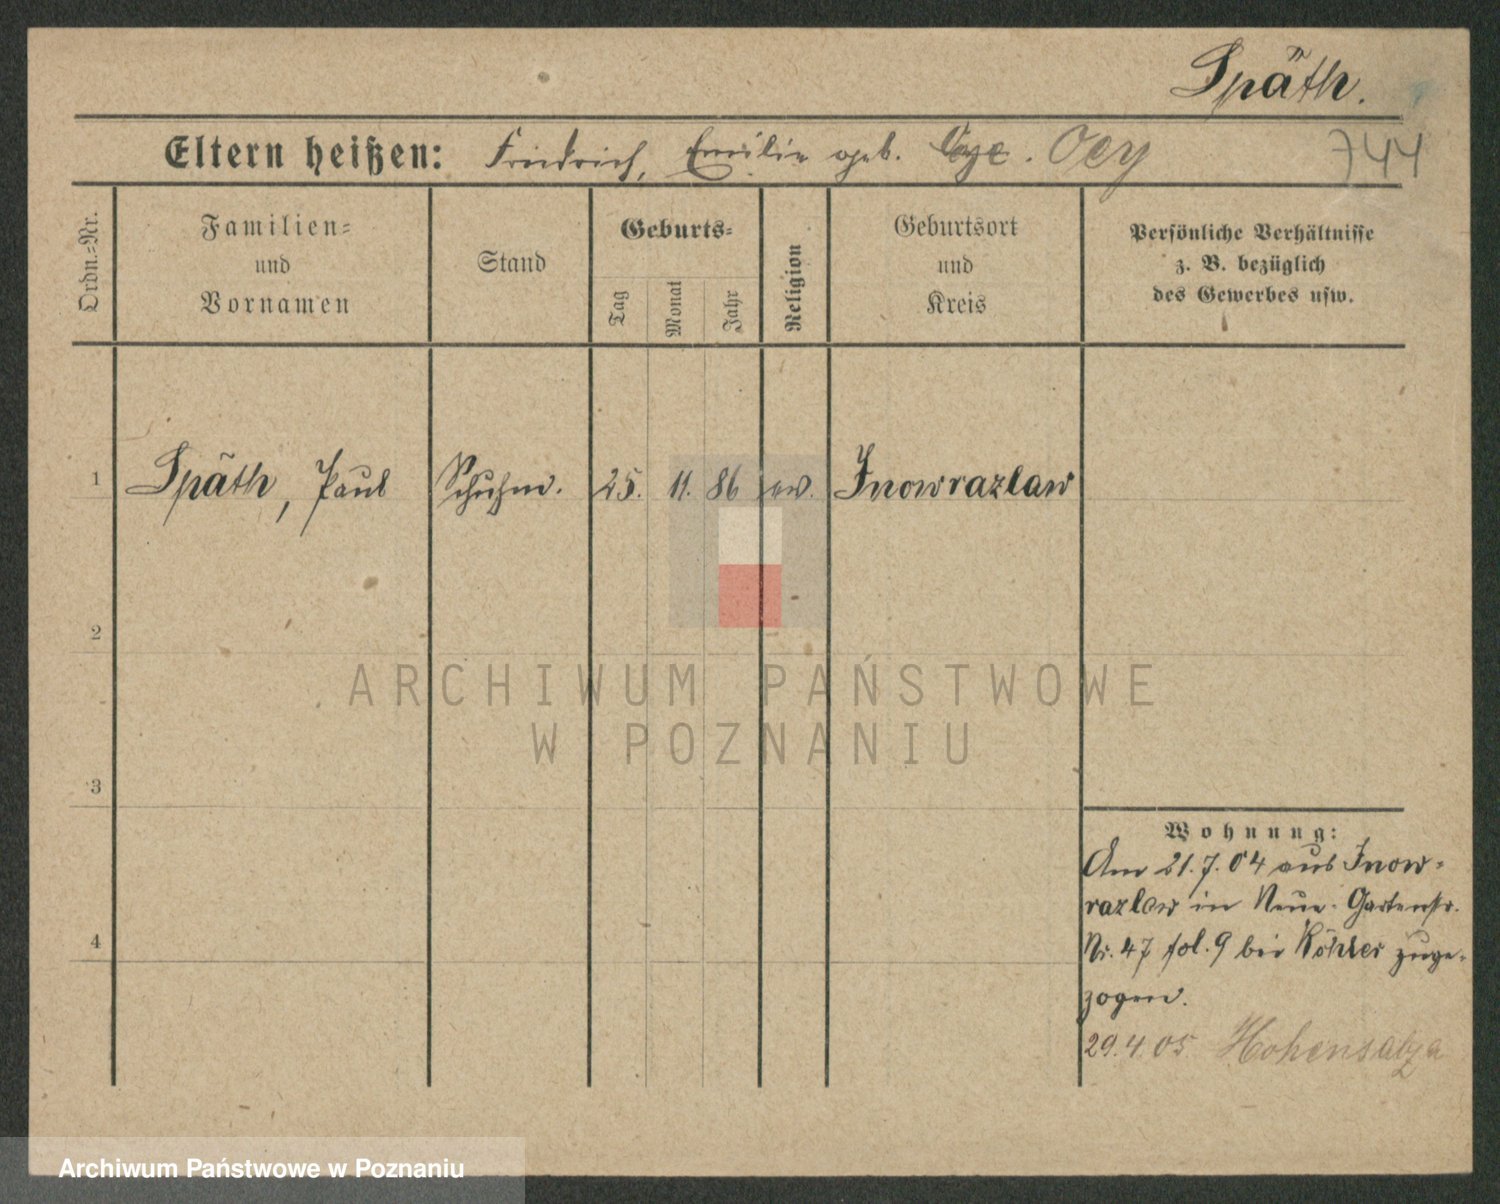 Späth.
Eltern heißen: Friedrich, Emilie geb. Oey
744
Ordn.=Nr.
Familien=
und
Vornamen
Stand
Geburts=
Tag
Monat
Jahr
Religion
Geburtsort
und
Kreis
Persönliche Verhältnisse
z. B. bezüglich
des Gewerbes usw.
1 Späth, Paul Schuhm. 25. 11. 86 ev. Inowrazlaw
2
3
4
Wohnung:
Am 21.7.04 aus Inow-
razlaw in Neue-Gartenstr.
Nr. 47 fol. 9 bei Köhler zuge-
zogen.
29.4.05 Hohensalza
ARCHIWUM PAŃSTWOWE
W POZNANIU
Archiwum Państwowe w Poznaniu